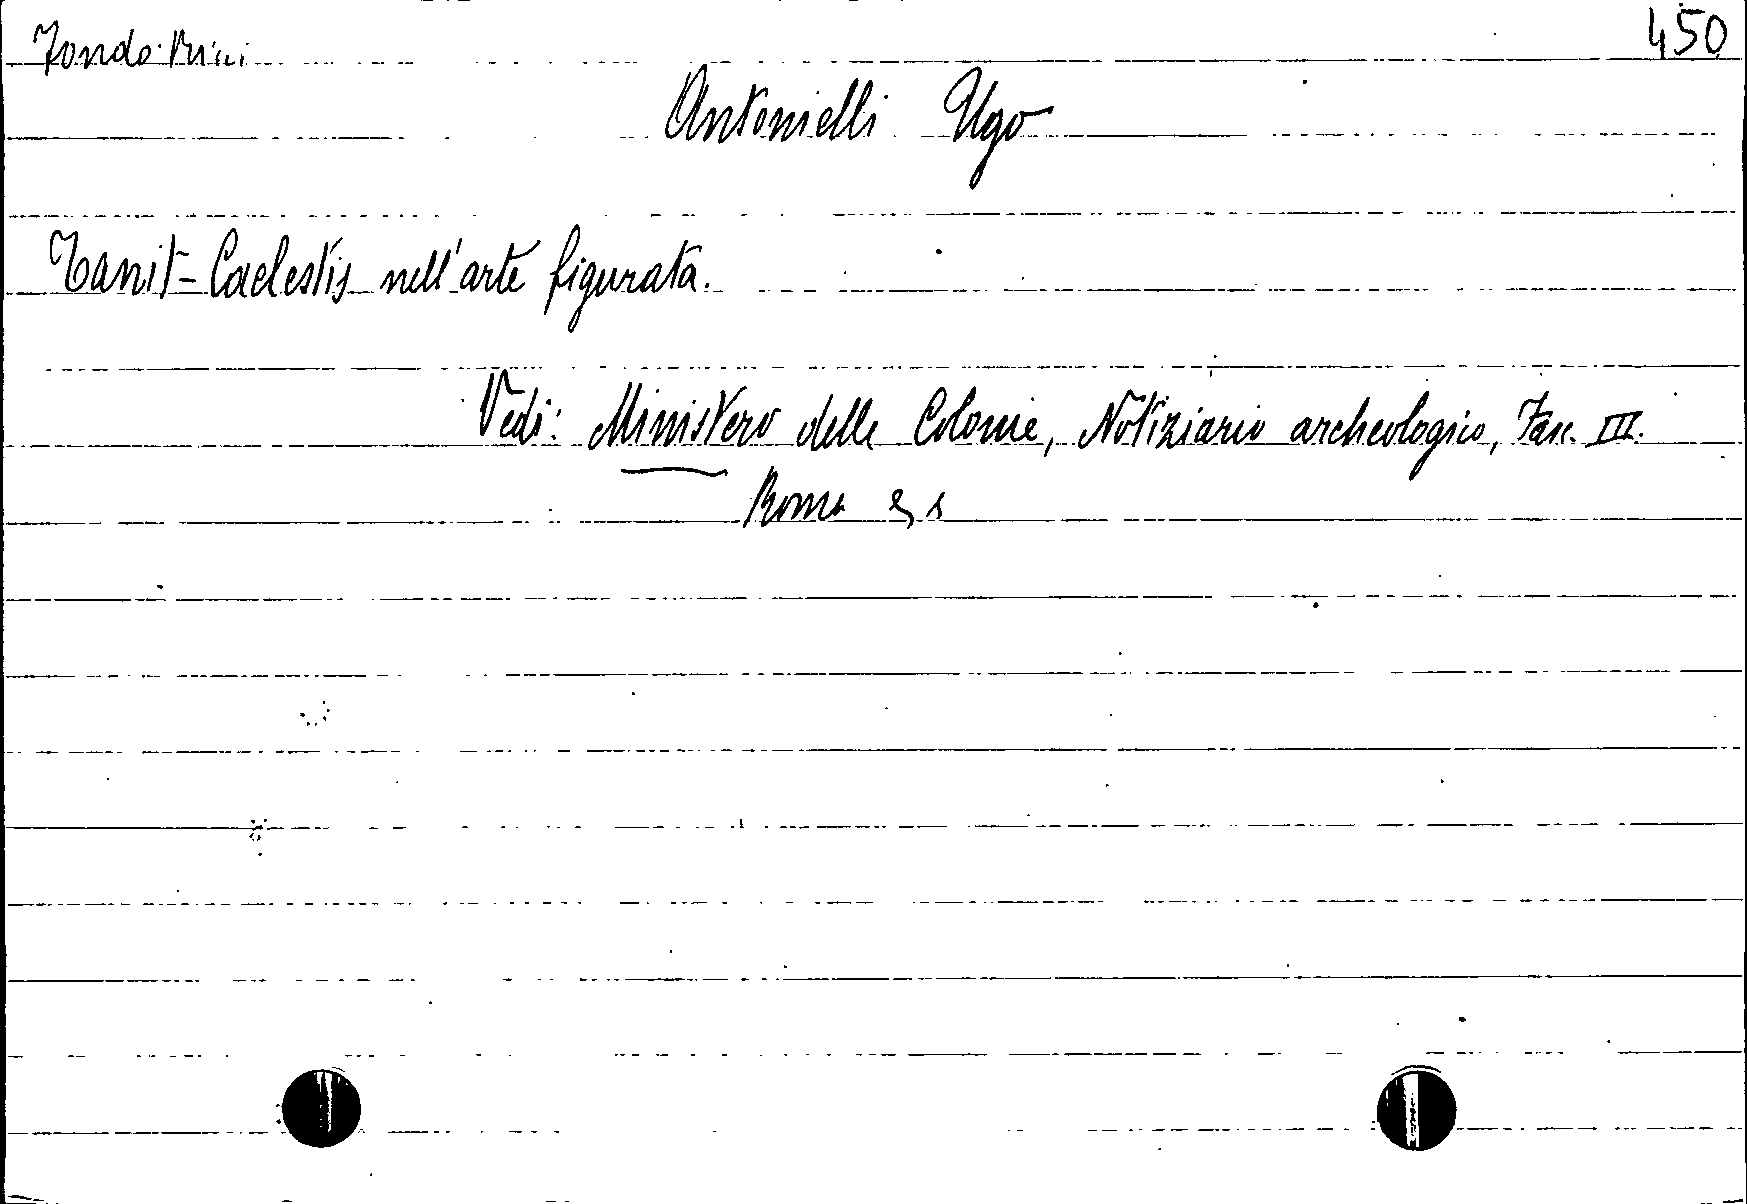 Fondo Ricci
450
Antonielli Ugo
Tanit-Caelestis nell'arte figurata.
Vedi: Ministero delle Colonie, Notiziario archeologico, Fasc. III.
Roma